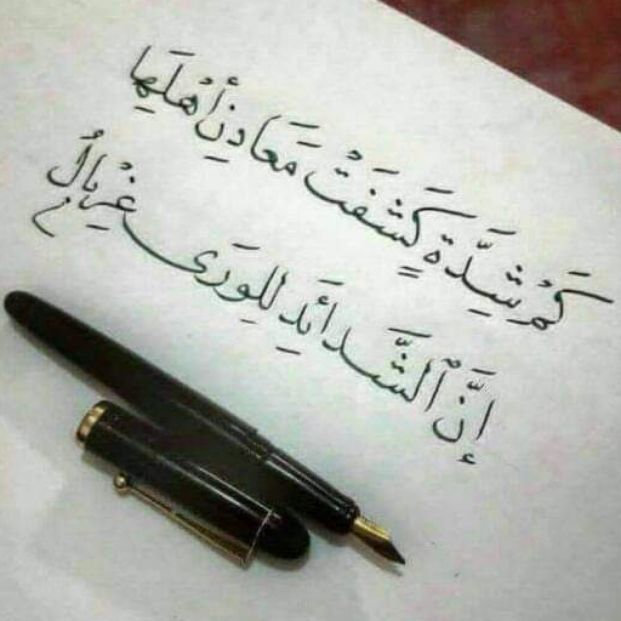 كَمْ شِدَّةٍ كَشَفَتْ مَعَادِنَ أَهْلِهَا
إِنَّ ٱلشَّدَائِدَ لِلْوَرَى غِرْبَالُ